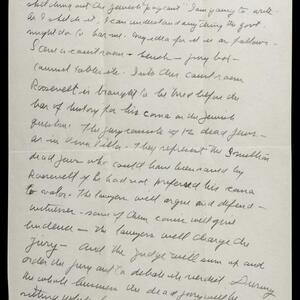 still thing out the Jewish "pageant" I am going to write
As I see it. I can understand anything the govt
might do to bar me. My idea for it is as follows.
Scene a court room – bench – jury box –
counsel tables etc. Into this court room
Roosevelt is brought to be tried before the
bar of history for his coma on the Jewish
question. The jury consists of the dead Jews –
as in Anna They represent the 3 million
dead Jews who could have been saved by
Roosevelt if he had not preferred his coma
to valor. The lawyers will argue and defend –
witnesses – some of them comics will give
evidence – the lawyers will charge the
jury – And the judge will sum up and
order the jury out to debate its verdict. During
the whole business the dead jury will be
sitting